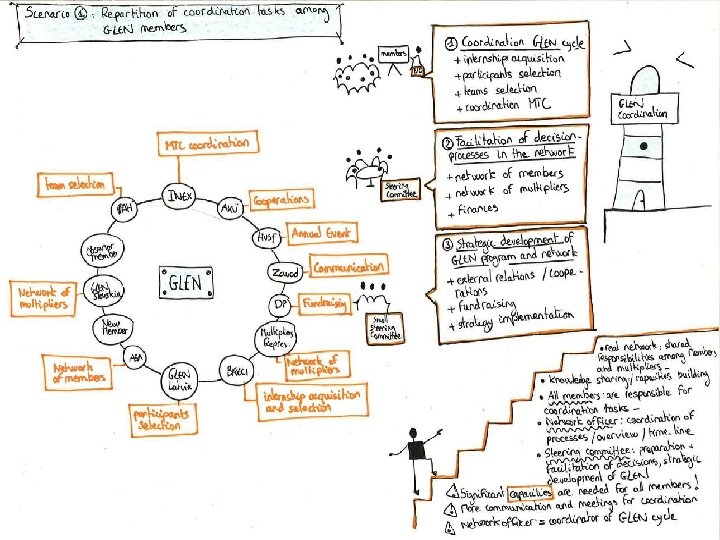 Scenario ①: Repartition of coordination tasks among
GLEN members
members
① Coordination GLEN cycle
+ internship acquisition
+ participants selection
+ teams selection
+ coordination MTC
GLEN
Coordination
② Facilitation of decision-
processes in the network
+ network of members
+ network of multipliers
+ finances
Steering
Committee
③ Strategic development of
GLEN program and network
+ external relations / coope-
rations
+ fundraising
+ strategy implementation
Small
Steering
Committee
MTC coordination
team selection
INEX
AKU
Cooperations
Husf
Annual Event
Zavod
Communication
GLEN
DP
Fundraising
Multipliers
Repres.
Network of
multipliers
BKGCI
internship acquisition
and selection
GLEN
Latvia
participants
selection
ASA
Network
of members
New
Member
GLEN
Slovakia
Network of
multipliers
member
• real network: shared
responsibilities among members
and multipliers -
• knowledge sharing/capacities building
• All members: are responsible for
coordination tasks -
• Network officer: coordination of
processes/overview/time-line
• Steering committee: preparation +
facilitation of decisions, strategic
development of GLEN
! Significant capacities are needed for all members!
! More communication and meetings for coordination
! Network officer = coordinator of GLEN cycle